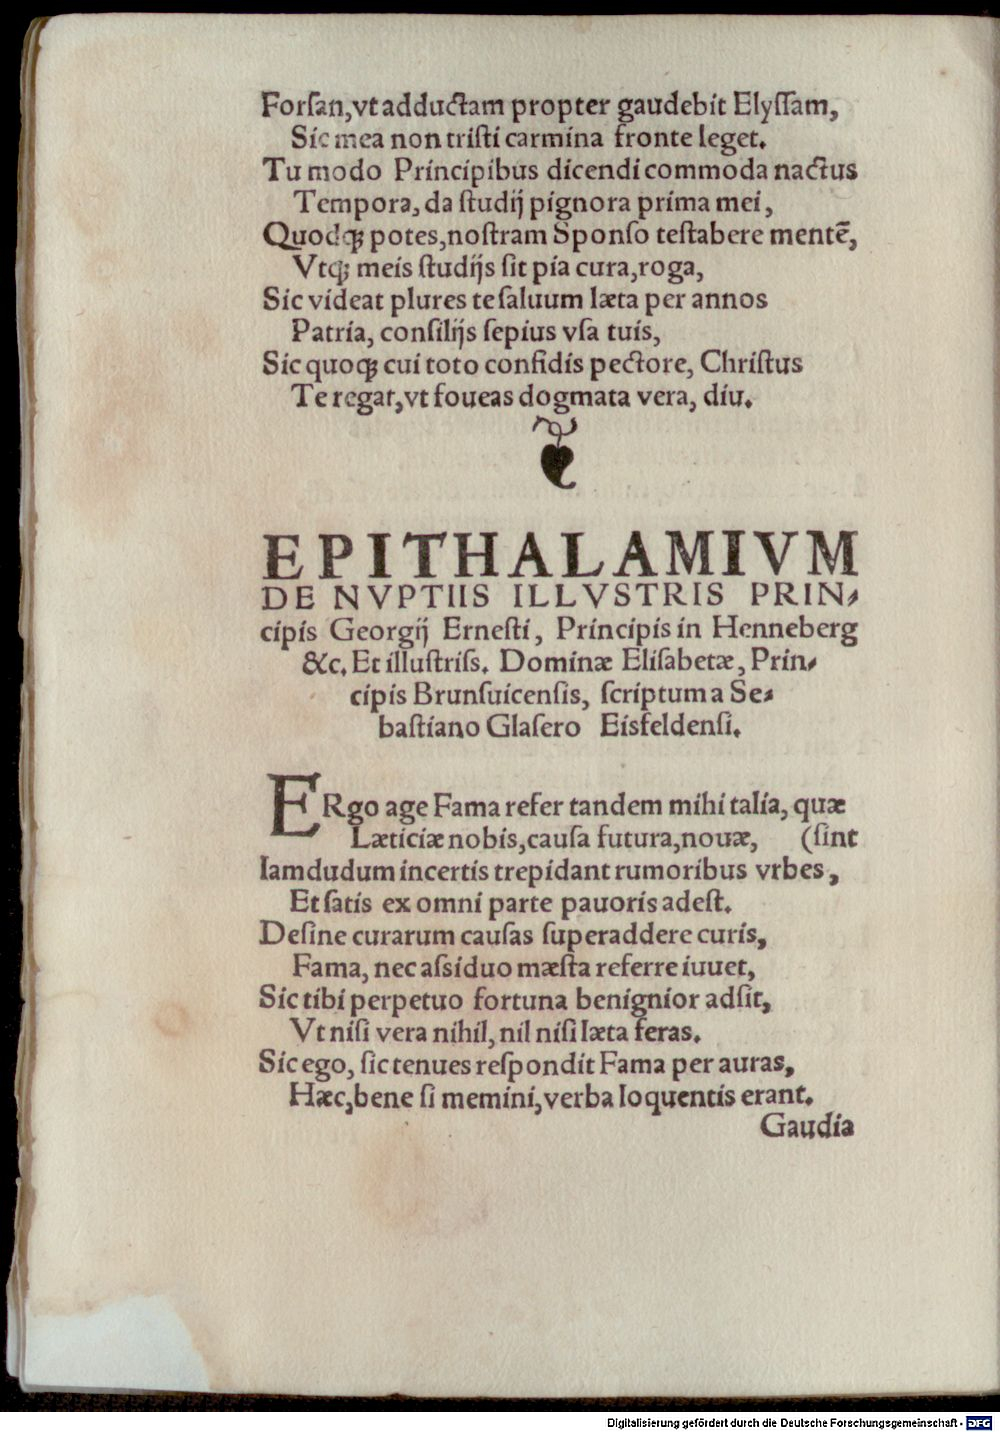 Forſan,vt adductam propter gaudebit Elyſſam,
Sic mea non triſti carmina fronte leget.
Tu modo Principibus dicendi commoda nactus
Tempora, da ſtudij pignora prima mei,
Quodq́; potes,noſtram Sponſo teſtabere mentẽ,
Vtq́; meis ſtudijs ſit pia cura,roga,
Sic videat plures te ſaluum læta per annos
Patria, conſilijs ſepius vſa tuis,
Sic quoq́; cui toto confidis pectore, Chriſtus
Te regat,vt foueas dogmata vera, diu.
EPITHALAMIVM
DE NVPTIIS ILLVSTRIS PRIN⸗
cipis Georgij Erneſti, Principis in Henneberg
&c. Et illuſtriſs. Dominæ Eliſabetæ, Prin⸗
cipis Brunſuicenſis, ſcriptum a Se⸗
baſtiano Glaſero Eisfeldenſi.
ERgo age Fama refer tandem mihi talia, quæ
Læticiæ nobis,cauſa futura,nouæ, (ſint
Iamdudum incertis trepidant rumoribus vrbes,
Et ſatis ex omni parte pauoris adeſt.
Deſine curarum cauſas ſuperaddere curis,
Fama, nec aſsiduo mæſta referre iuuet,
Sic tibi perpetuo fortuna benignior adſit,
Vt niſi vera nihil, nil niſi læta feras.
Sic ego, ſic tenues reſpondit Fama per auras,
Hæc,bene ſi memini,verba loquentis erant.
Gaudia
Digitalisierung gefördert durch die Deutsche Forschungsgemeinschaft - DFG